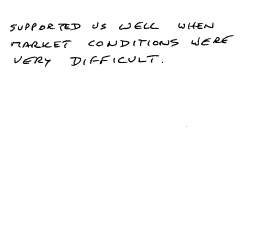 SUPPORTED US WELL WHEN
MARKET CONDITIONS WERE
VERY DIFFICULT.